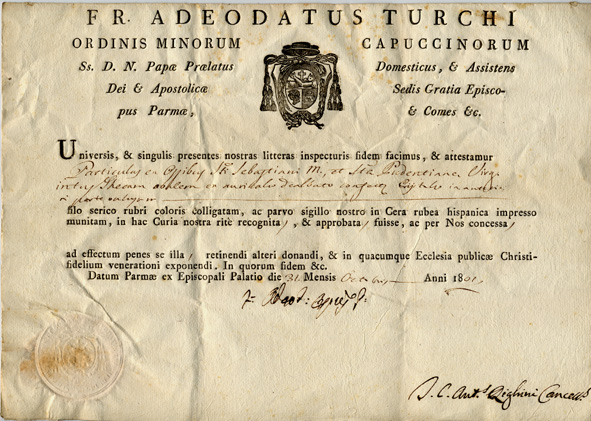 FR. ADEODATUS TURCHI
ORDINIS MINORUM CAPUCCINORUM
Ss. D. N. Papæ Prælatus Domesticus, & Assistens
Dei & Apostolicæ Sedis Gratia Episco-
pus Parmæ, & Comes &c.
Universis, & singulis presentes nostras litteras inspecturis fidem facimus, & attestamur
Particulas ex Ossibus Sti Sebastiani M, et Stæ Pudentianæ Virg
intus Thecam ovalem ex aurichalco deaurato
filo serico rubri coloris colligatam, ac parvo sigillo nostro in Cera rubea hispanica impresso
munitam, in hac Curia nostra ritè recognita, & approbata, fuisse, ac per Nos concessa,
ad effectum penes se illa, retinendi alteri donandi, & in quacumque Ecclesia publicæ Christi-
fidelium venerationi exponendi. In quorum fidem &c.
Datum Parmæ ex Episcopali Palatio die 31 Mensis Octobris Anni 1801.